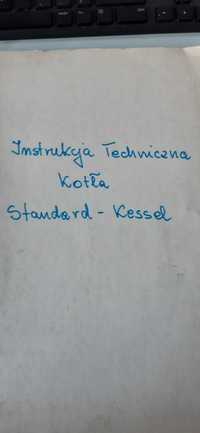 Instrukcja Techniczna
Kotła
Standard - Kessel